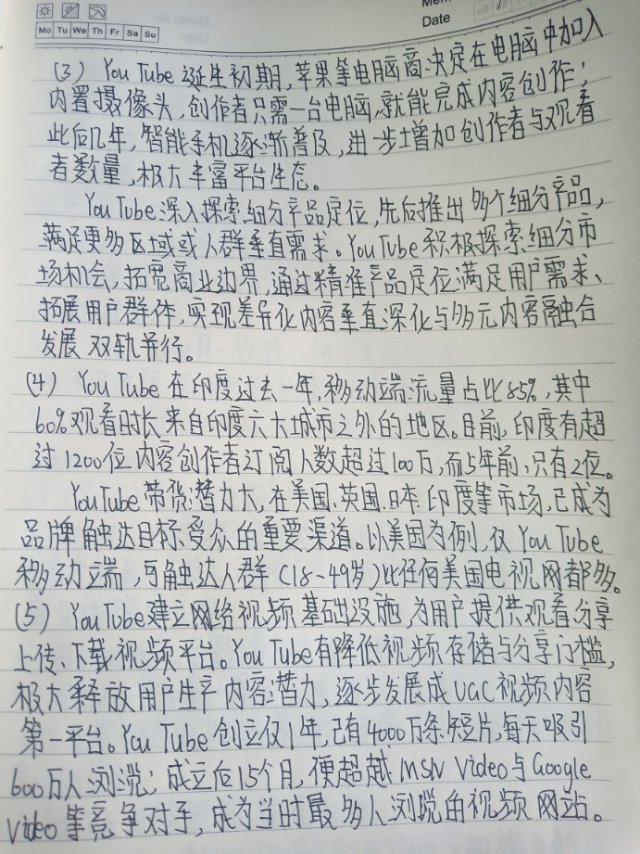 Mem
Date
Mo Tu We Th Fr Sa Su
(3) YouTube诞生初期,苹果等电脑商决定在电脑中加入
内置摄像头,创作者只需一台电脑,就能完成内容创作;
此后几年,智能手机逐渐普及,进一步增加创作者与观看
者数量,极大丰富平台生态。
YouTube深入探索细分产品定位,先后推出多个细分产品,
满足更多区域或人群垂直需求。YouTube积极探索细分市
场机会,拓宽商业边界,通过精准产品定位满足用户需求、
拓展用户群体,实现差异化内容垂直深化与多元内容融合
发展双轨并行。
(4) YouTube在印度过去一年,移动端流量占比85%,其中
60%观看时长来自印度六大城市之外的地区。目前,印度有超
过1200位内容创作者订阅人数超过100万,而5年前,只有2位。
YouTube带货潜力大,在美国、英国、日本、印度等市场,已成为
品牌触达目标受众的重要渠道。以美国为例,仅YouTube
移动端,可触达人群(18-49岁)比任何美国电视网都多。
(5) YouTube建立网络视频基础设施,为用户提供观看分享
上传、下载视频平台。YouTube有降低视频存储与分享门槛,
极大释放用户生产内容潜力,逐步发展成UGC视频内容
第一平台。YouTube创立仅1年,已有4000万条短片,每天吸引
600万人浏览;成立后15个月,便超越MSN Video与Google
Video等竞争对手,成为当时最多人浏览的视频网站。